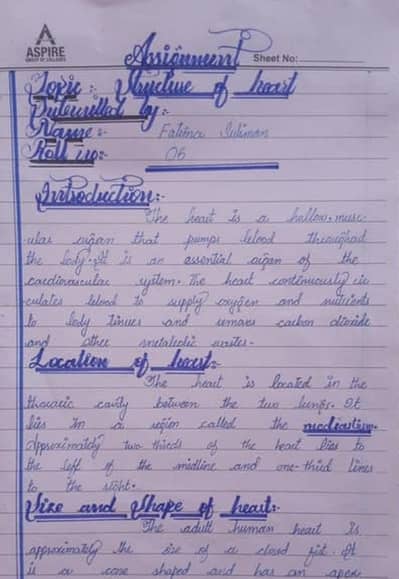 ASPIRE
GROUP OF COLLEGES
Assignment
Sheet No:
Topic : Structure of heart
by :
Name :-
Fatima Suliman
Roll no:-
06
Introduction:-
The heart is a hollow, musc-
ular organ that pumps blood throughout
the body. It is an essential organ of the
cardiovascular system. The heart continuously cir
culates blood to supply oxygen and nutrients
to body tissues and removes carbon dioxide
and other metabolic wastes.
Location of heart:-
The heart is located in the
thoracic cavity between the two lungs. It
lies in a region called the
Approximately two thirds of the heart lies to
the left of the midline and one-third lines
to the right.
Size and Shape of heart:-
The adult human heart is
approximately the size of a closed fist. It
is a cone shaped and has an apex